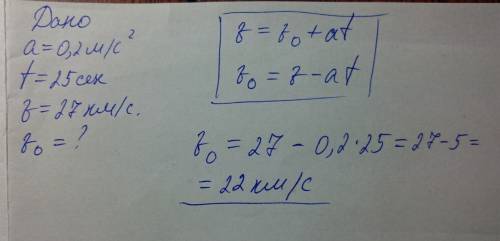 Дано
a=0,2м/с²
t=25сек
v=27км/с.
v₀=?
v=v₀+at
v₀=v-at
v₀=27-0,2·25=27-5=
=22км/с